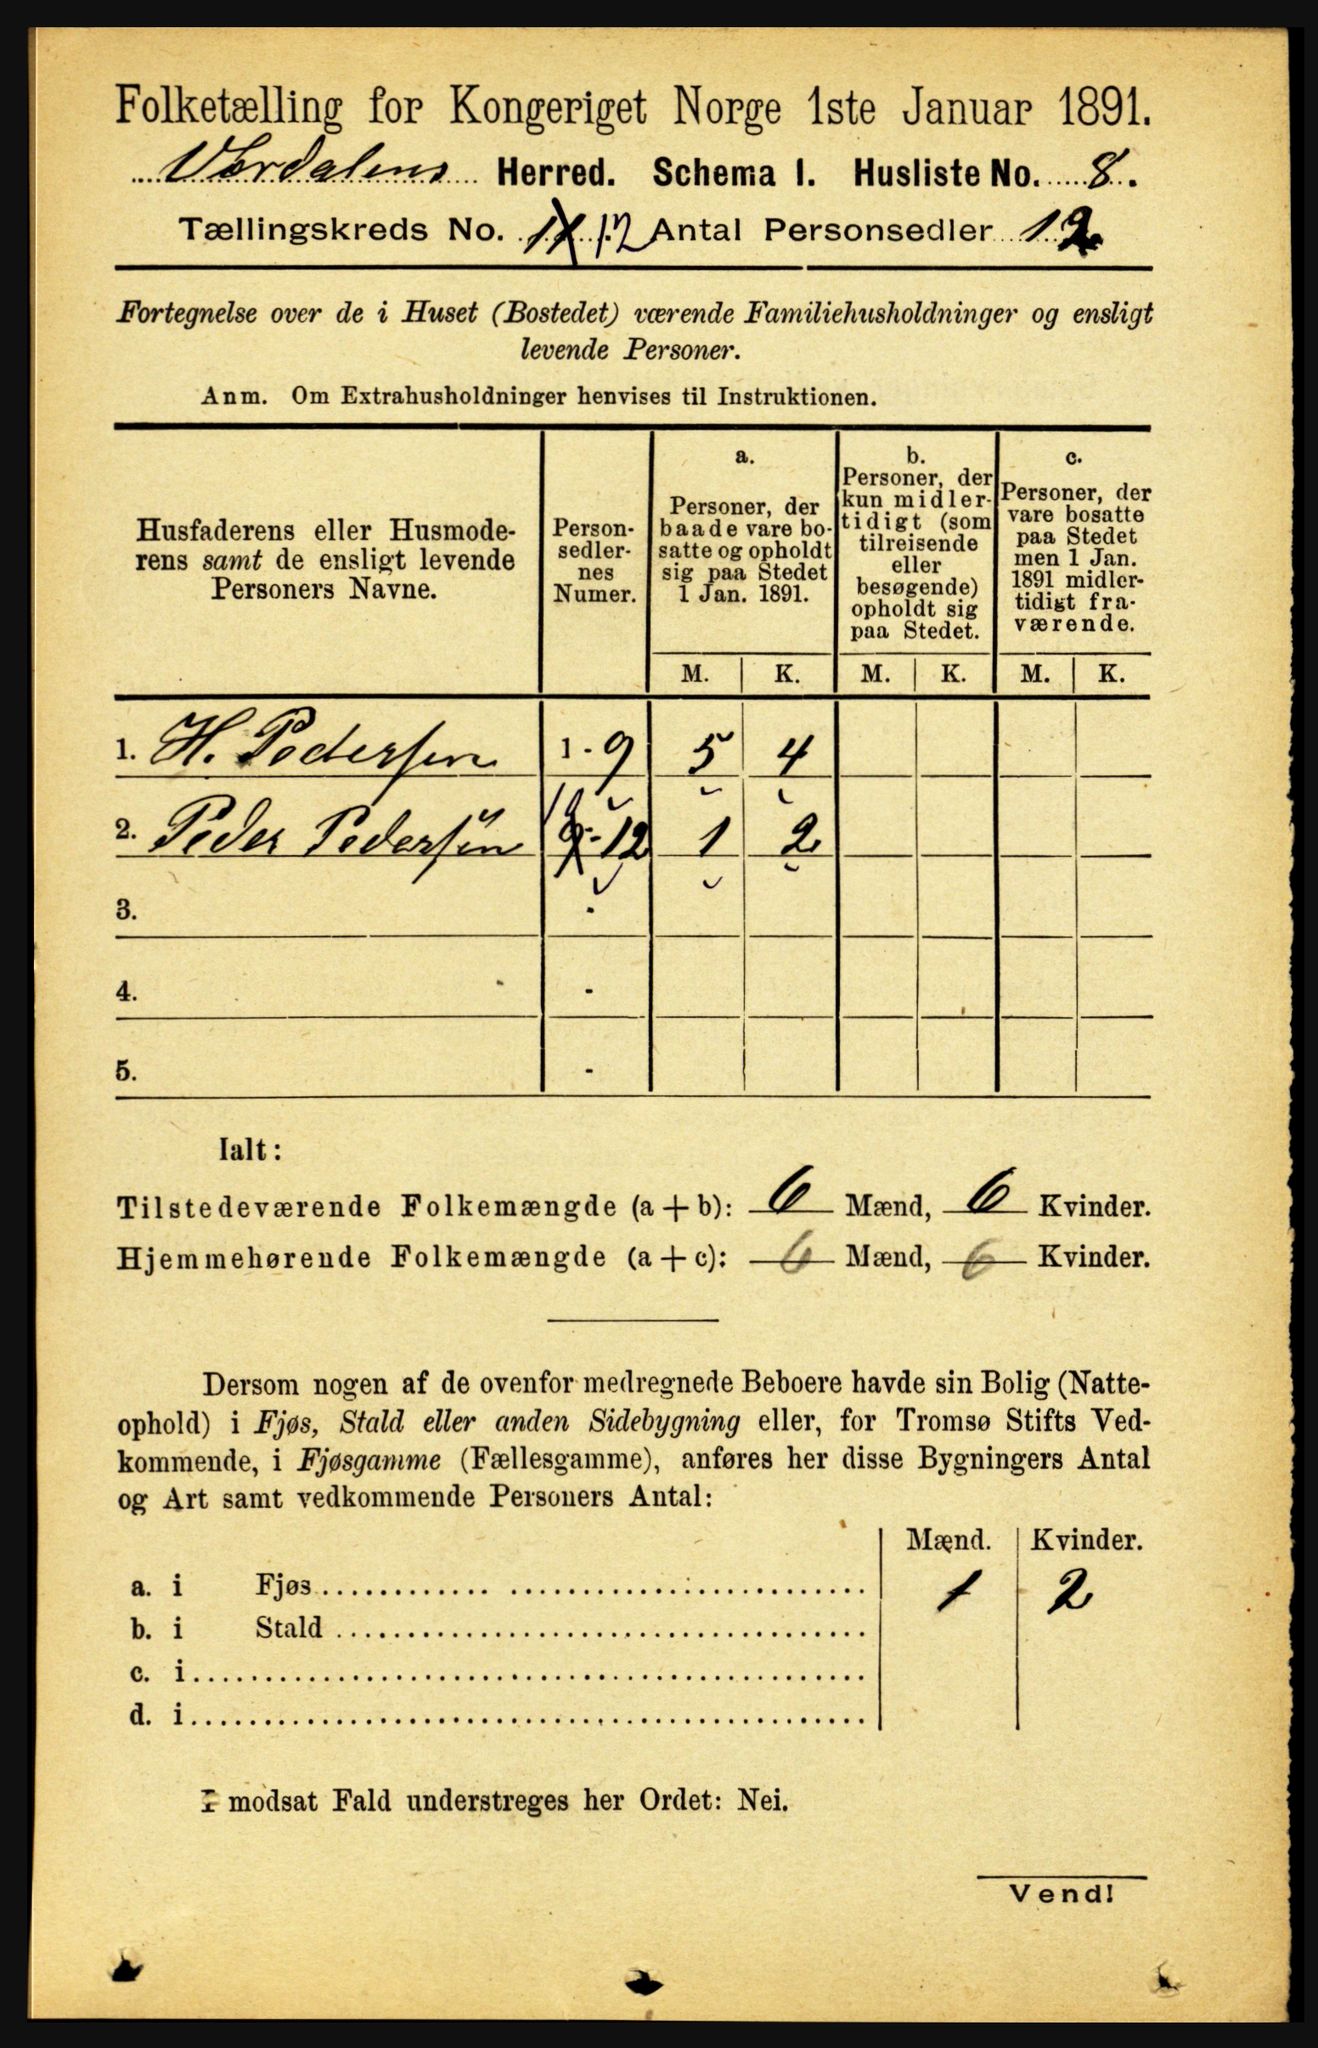 Folketælling for Kongeriget Norge 1ste Januar 1891.
Værdalens Herred. Schema I. Husliste No. 8.
Tællingskreds No. 11 12 Antal Personsedler 12
Fortegnelse over de i Huset (Bostedet) værende Familiehusholdninger og ensligt
levende Personer.
Anm. Om Extrahusholdninger henvises til Instruktionen.
Husfaderens eller Husmode-
rens samt de ensligt levende
Personers Navne.
Person-
sedler-
nes
Numer.
a.
Personer, der
baade vare bo-
satte og opholdt
sig paa Stedet
1 Jan. 1891.
b.
Personer, der
kun midler-
tidigt (som
tilreisende
eller
besøgende)
opholdt sig
paa Stedet.
c.
Personer, der
vare bosatte
paa Stedet
men 1 Jan.
1891 midler-
tidigt fra-
værende.
M. K. M. K. M. K.
1. H. Pedersen 1 - 9 5 4
2. Peder Pedersen - 12 1 2
3. -
4. -
5. -
Ialt:
Tilstedeværende Folkemængde (a + b): 6 Mænd, 6 Kvinder.
Hjemmehørende Folkemængde (a + c): 6 Mænd, 6 Kvinder.
Dersom nogen af de ovenfor medregnede Beboere havde sin Bolig (Natte-
ophold) i Fjøs, Stald eller anden Sidebygning eller, for Tromsø Stifts Ved-
kommende, i Fjøsgamme (Fællesgamme), anføres her disse Bygningers Antal
og Art samt vedkommende Personers Antal:
Mænd. Kvinder.
a. i Fjøs 1 2
b. i Stald
c. i
d. i
I modsat Fald understreges her Ordet: Nei.
Vend!